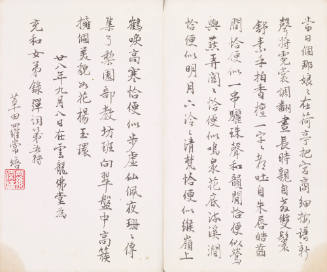 當日個那娘娘在荷亭把宮商細按譜新
聲將霓裳調翻晝長時親自教雙鬟
舒素手拍香檀一字字都吐自朱唇皓齒
間恰便似一串驪珠聲和韻閒恰便似鶯
與燕弄關關恰便似鳴泉花底流溪澗
恰便似明月下泠泠清梵恰便似緱嶺上
鶴唳高寒恰便似步虛仙珮夜珊珊傳
集了梨園部教坊班向翠盤中高簇
擁個美貌如花楊玉環
廿八年九月八日在雲龍佛堂為
充和女弟錄彈詞第五行
莘田羅常培